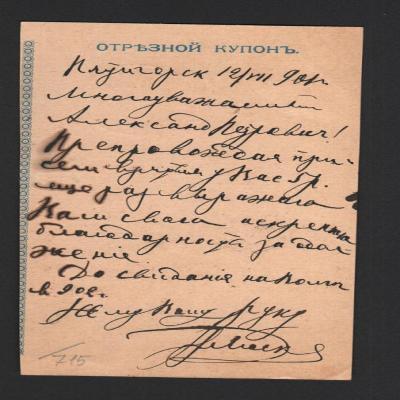 ОТРѢЗНОЙ КУПОНЪ.
Пятигорск 12/VII 90
Многоуважаемый
Александр Петрович!
Препровождая при
сем взятыя у Вас
еще раз выражаю
Вам свою искреннюю
благодарность за одол
жение.
До свидания, на
в 902 г.
Жму Вашу руку
715